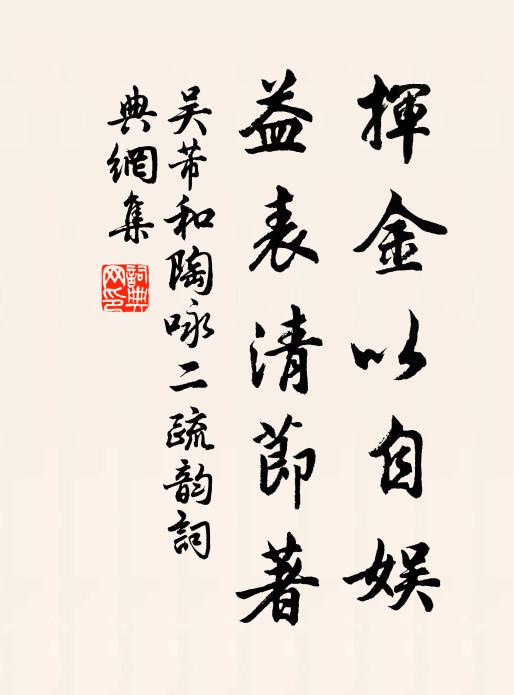 揮金以自娱
益表清節著
吴芾和陶咏二疏韵詞
典網集
詞典
网印